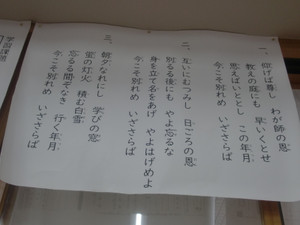 一、
仰げば尊し　わが師の恩
教えの庭にも　早いくとせ
思えばいととし　この年月
今こそ別れめ　いざさらば
二、
互いにむつみし　日ごろの恩
別るる後にも　やよ忘るな
身を立て名をあげ　やよはげめよ
今こそ別れめ　いざさらば
三、
朝夕なれにし　学びの窓
蛍の灯火　積む白雪
忘るる間ぞなき　行く年月
今こそ別れめ　いざさらば